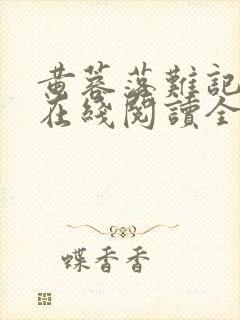 黄蓉落難記
在綫閱讀全
蝶香香